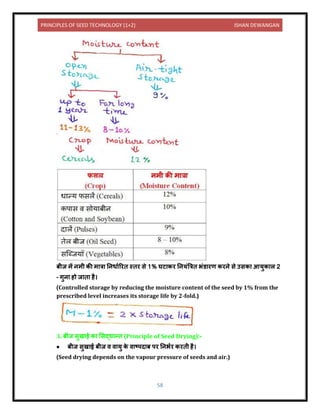 PRINCIPLES OF SEED TECHNOLOGY (1+2) ISHAN DEWANGAN
Moisture content
open Storage Air-tight Storage
up to 1 year For long time 9%
11-13% 8-10%
Crop Moisture Content
Cereals 12%
फसल (Crop) नमी की मात्रा (Moisture Content)
धान्य फसलें (Cereals) 12%
कपास व सोयाबीन (Cotton and Soybean) 10%
दालें (Pulses) 9%
तेल बीज (Oil Seed) 8 – 10%
सब्जियाँ (Vegetables) 8%
बीज में नमी की मात्रा निर्धारित स्तर से 1% घटाकर नियंत्रित भंडारण करने से उसका आयुकाल 2
- गुना हो जाता है।
(Controlled storage by reducing the moisture content of the seed by 1% from the
prescribed level increases its storage life by 2-fold.)
M-1% = 2 x storage life
3. बीज सुखाई का सिद्धान्त (Principle of Seed Drying):-
• बीज सुखाई बीज व वायु के वाष्पदाब पर निर्भर करती है।
(Seed drying depends on the vapour pressure of seeds and air.)
58